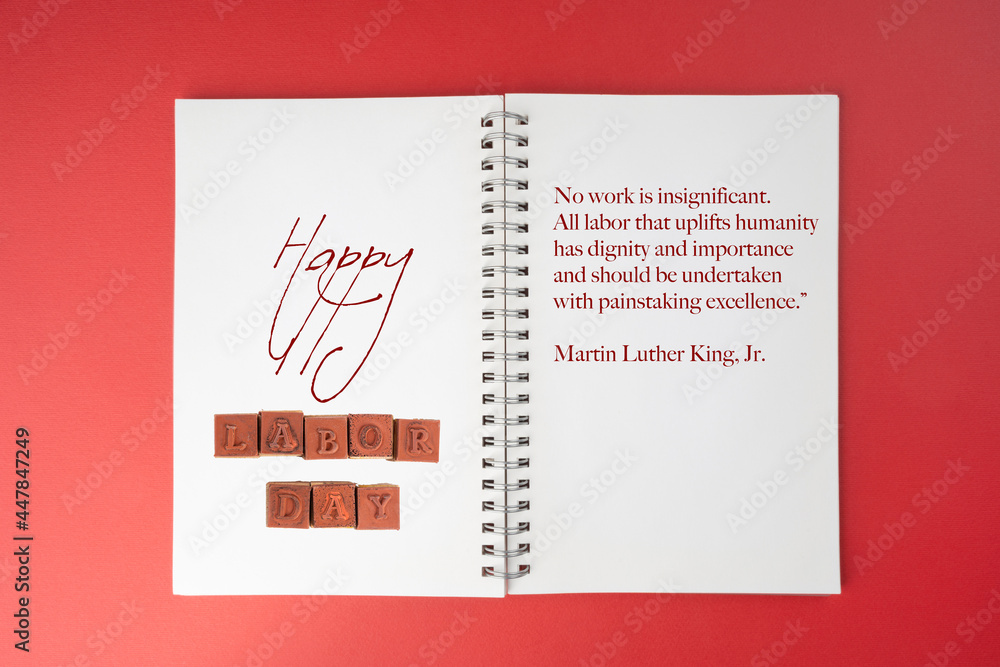 Happy
LABOR
DAY
No work is insignificant.
All labor that uplifts humanity
has dignity and importance
and should be undertaken
with painstaking excellence.”
Martin Luther King, Jr.
Adobe Stock | #447847249
Adobe Stock